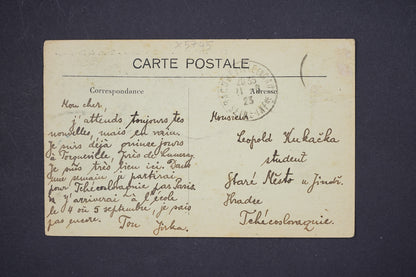 X5+45
CARTE POSTALE
Correspondance
Adresse
Mon cher,
j'attends toujours tes
nouvelles, mais en vain.
Je suis déjà quinze jours
à Tocqueville, près de Luneray.
Je suis très bien ici. Dans
une semaine, je partirai
pour Tchécoslovaquie par Paris
n'y arriverai à l'école
le 4 où 5 septembre, je sais
pas encore.
Ton Jirka.
Monsieur
Leopold Kukačka
student
Staré Město u Jindř.
Hradce
Tchécoslovaquie.